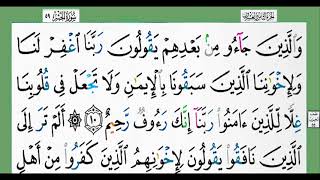 سُورَةُ الحَشۡرِ ٥٩
وَٱلَّذِينَ جَآءُو مِنۢ بَعۡدِهِمۡ يَقُولُونَ رَبَّنَا ٱغۡفِرۡ لَنَا
وَلِإِخۡوَٰنِنَا ٱلَّذِينَ سَبَقُونَا بِٱلۡإِيمَٰنِ وَلَا تَجۡعَلۡ فِي قُلُوبِنَا
غِلّٗا لِّلَّذِينَ ءَامَنُواْ رَبَّنَآ إِنَّكَ رَءُوفٞ رَّحِيمٌ ١٠ ۞ أَلَمۡ تَرَ إِلَى
ٱلَّذِينَ نَافَقُواْ يَقُولُونَ لِإِخۡوَٰنِهِمُ ٱلَّذِينَ كَفَرُواْ مِنۡ أَهۡلِ